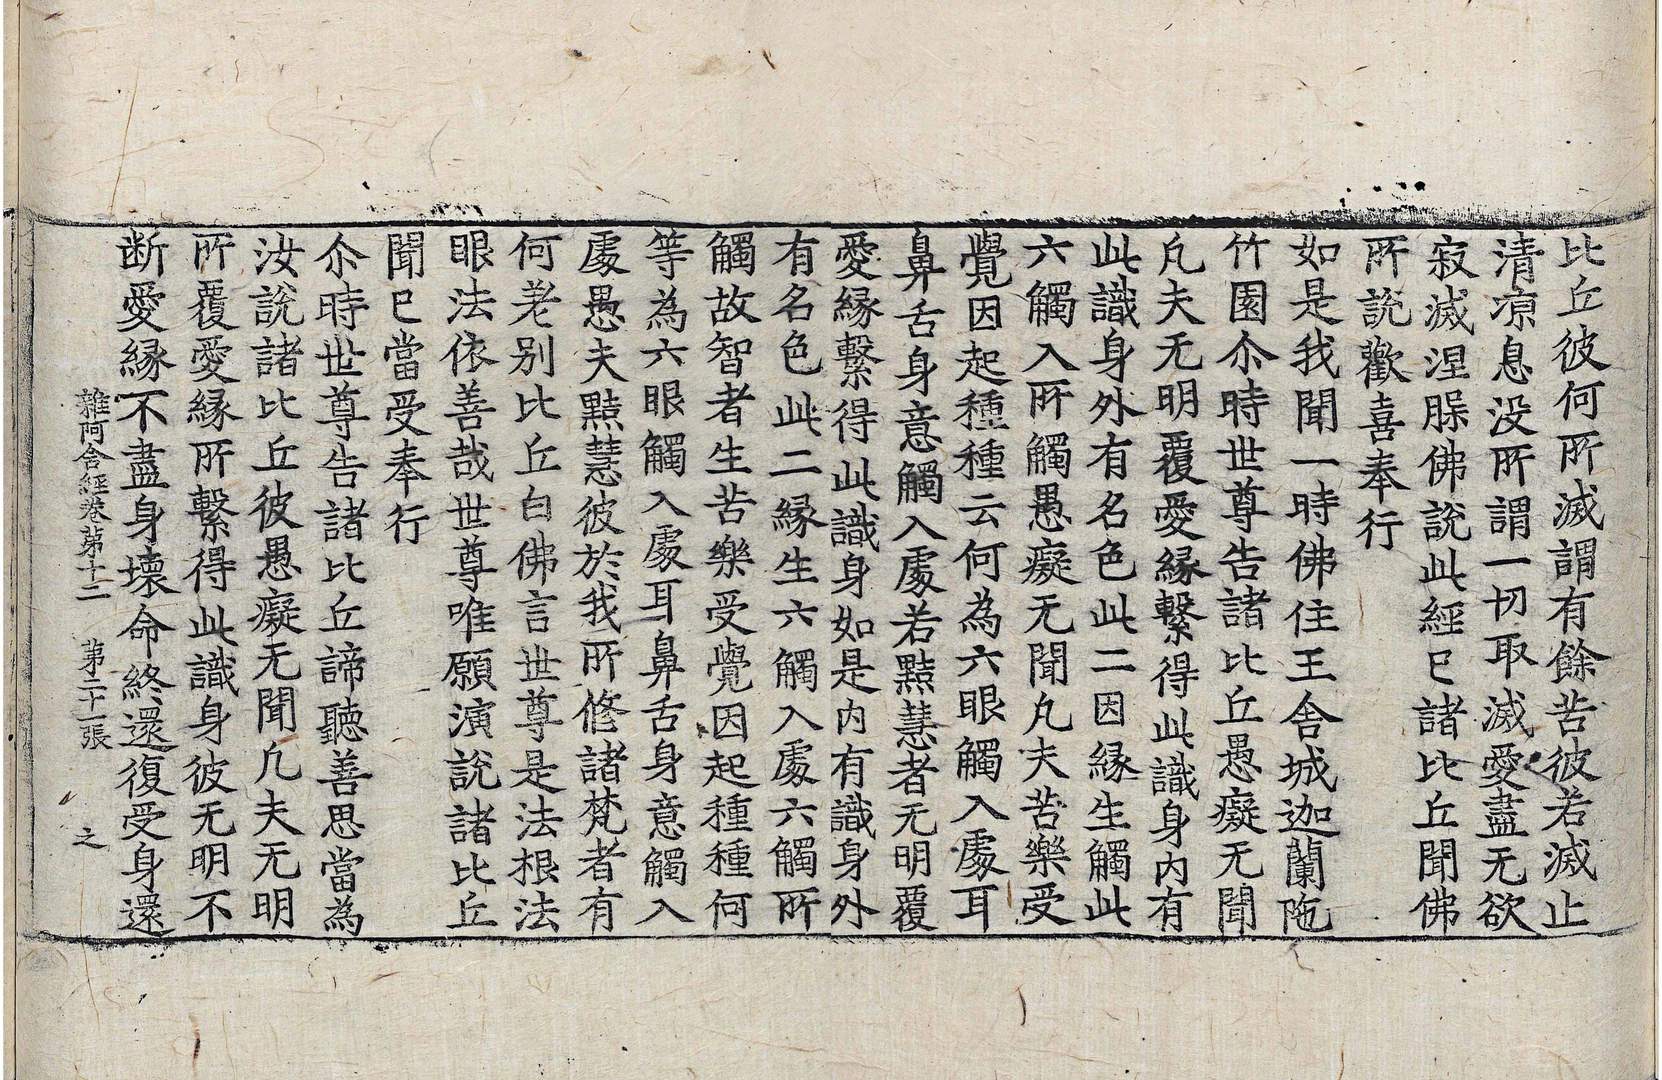 比丘彼何所滅謂有餘苦彼若滅止
清凉息没所謂一切取滅愛盡无欲
寂滅涅槃佛說此經已諸比丘聞佛
所說歡喜奉行
如是我聞一時佛住王舍城迦蘭陁
竹園尒時世尊告諸比丘愚癡无聞
凡夫无明覆愛縁繫得此識身内有
此識身外有名色此二因縁生觸此
六觸入所觸愚癡无聞凡夫苦樂受
覺因起種種云何為六眼觸入處耳
鼻舌身意觸入處若黠慧者无明覆
愛縁繫得此識身如是内有識身外
有名色此二縁生六觸入處六觸所
觸故智者生苦樂受覺因起種種何
等為六眼觸入處耳鼻舌身意觸入
處愚夫黠慧彼於我所修諸梵者有
何差别比丘白佛言世尊是法根法
眼法依善哉世尊唯願演說諸比丘
聞已當受奉行
尒時世尊告諸比丘諦聽善思當為
汝說諸比丘彼愚癡无聞凡夫无明
所覆愛縁所繫得此識身彼无明不
断愛縁不盡身壞命終還復受身還
雜阿含經卷苐十二 苐二十一張 之